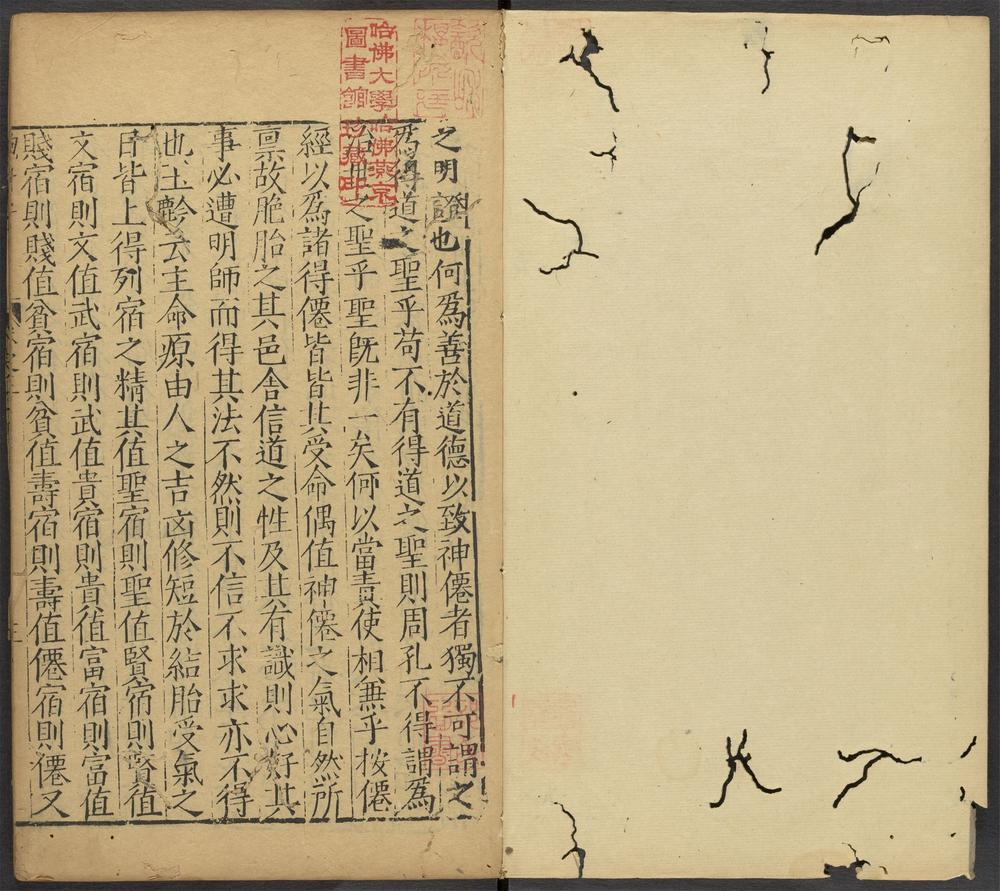 哈佛大學哈佛燕京
圖書館珍藏印
之明證也何爲善於道德以致神僊者獨不可謂之
爲得道之聖乎苟不有得道之聖則周孔不得謂爲
治世之聖乎聖旣非一矣何以當責使相兼乎按僊
經以爲諸得僊皆皆其受命偶值神僊之氣自然所
禀故胞胎之其邑舍信道之性及其有識則心好其
事必遭明師而得其法不然則不信不求求亦不得
也玉鈐云主命源由人之吉凶修短於結胎受氣之
日皆上得列宿之精其值聖宿則聖值賢宿則賢值
文宿則文值武宿則武值貴宿則貴值富宿則富值
賤宿則賤值貧宿則貧值壽宿則壽值僊宿則僊又